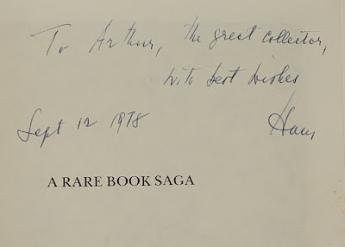 To Arthur, the great collector,
with best wishes
Sept 12 1978
Hans
A RARE BOOK SAGA